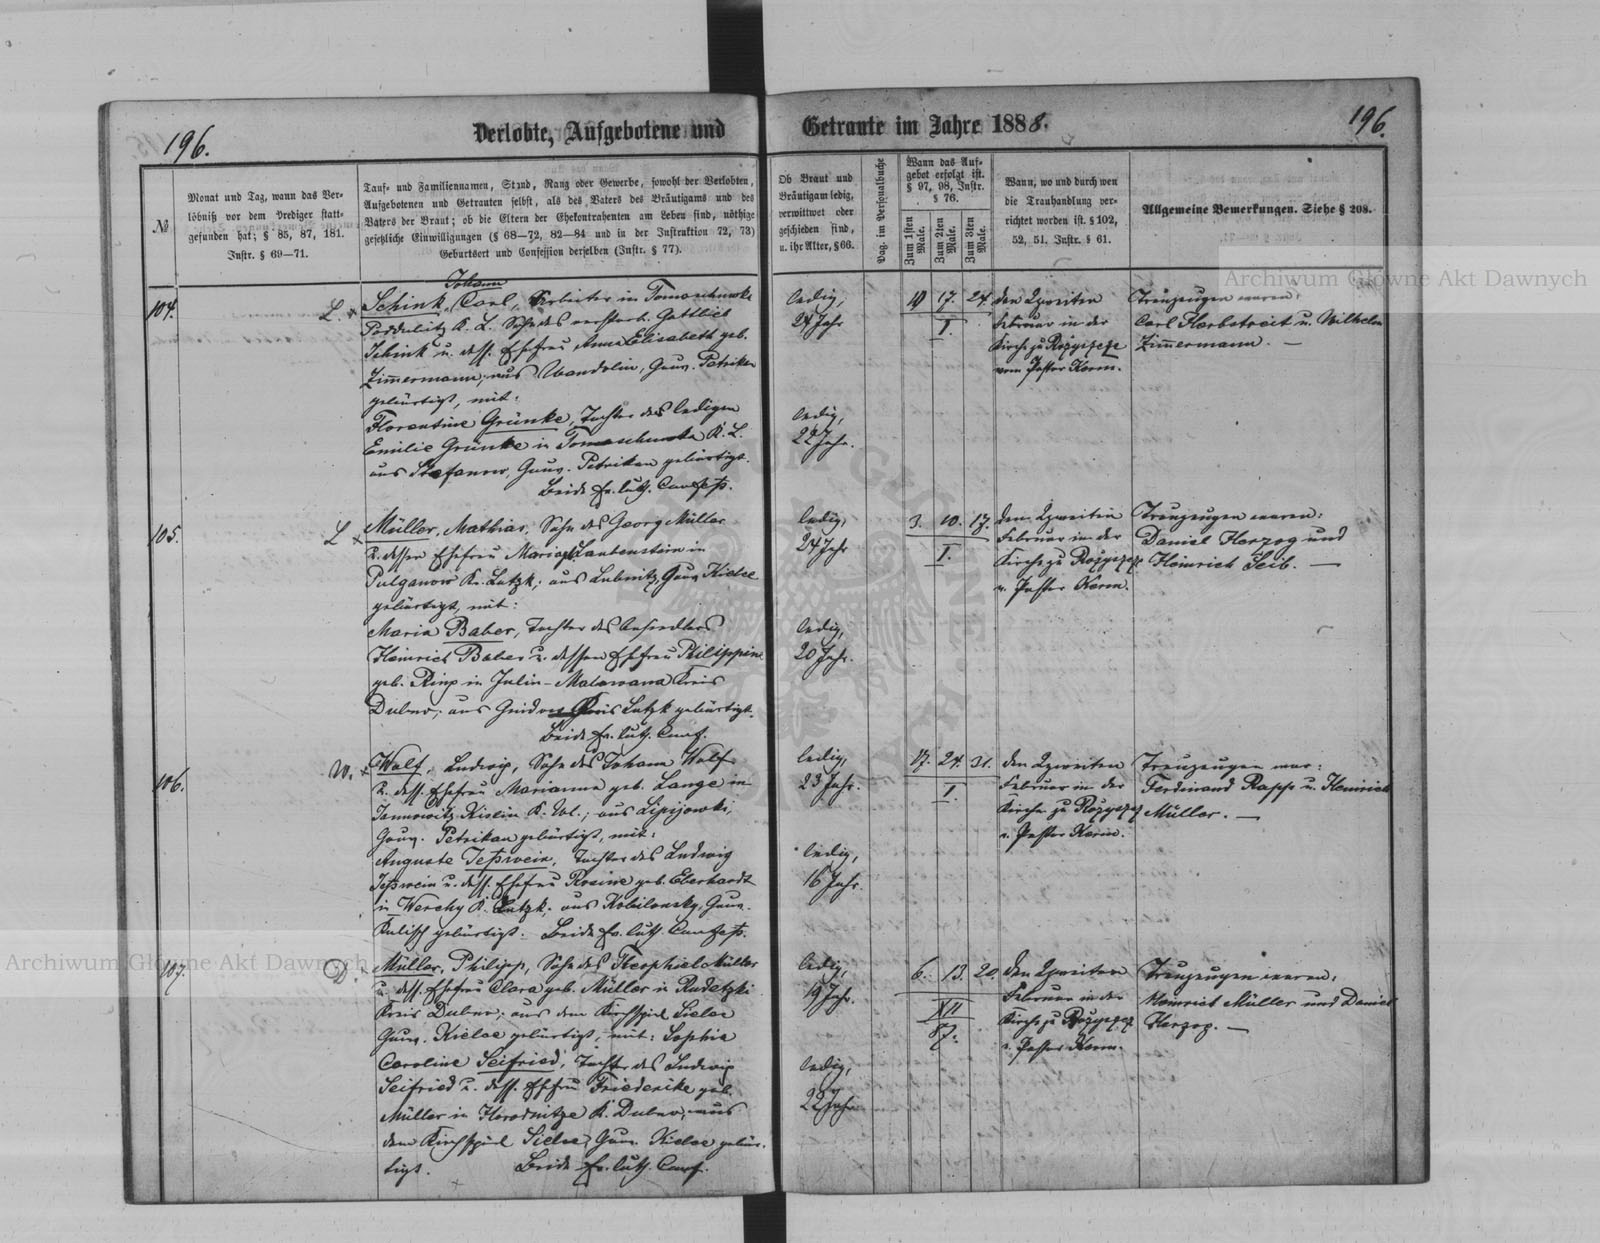 196.
Verlobte, Aufgebotene und
Getraute im Jahre 1888.
196.
№
Monat und Tag, wann das Ver-
löbniß vor dem Prediger statt-
gefunden hat; § 85, 87, 181.
Instr. § 69—71.
Tauf- und Familiennamen, Stand, Rang oder Gewerbe, sowohl der Verlobten,
Aufgebotenen und Getrauten selbst, als des Vaters des Bräutigams und des
Vaters der Braut; ob die Eltern der Ehekontrahenten am Leben sind, nöthige
gesetzliche Einwilligungen (§ 68—72, 82—84 und in der Instruktion 72, 73)
Geburtsort und Confession derselben (Instr. § 77).
Ob Braut und
Bräutigam ledig,
verwittwet oder
geschieden sind,
u. ihr Alter, § 66.
Pag. im Personalbuche
Wann das Auf-
gebot erfolgt ist.
§ 97, 98, Instr.
§ 76.
Zum 1sten Male.
Zum 2ten Male.
Zum 3ten Male.
Wann, wo und durch wen
die Trauhandlung ver-
richtet worden ist. § 102,
52, 51. Instr. § 61.
Allgemeine Bemerkungen. Siehe § 208.
104.
L.
Johann
Schink, Carl, Arbeiter in Tomaschuwke
K. L. Sohn des verstorb. Gottlieb
Schink u. dess. Ehefrau Anna Elisabeth geb.
Zimmermann; aus Wandolin, Gouv. Petrikau
gebürtigt, mit:
Florentine Grünke, Tochter der ledigen
Emilie Grünke in Tomaschuwka K. L.
aus Stefanow, Gouv. Petrikau gebürtigt.
Beide ev. luth. Confess.
ledig,
24 Jahr
ledig,
22 Jahr.
10 17. 24.
I.
den Zweiten
Februar in der
Kirche zu Rozyszcze
vom Pastor Kerm.
Treuzeugen waren:
Carl Herbstreit u. Wilhelm
Zimmermann. —
105.
L
Müller, Mathias, Sohn des Georg Müller
u. dessen Ehefrau Maria Lautenstein in
Pulganow Kr. Lutzk; aus Lubnitz, Gouv. Kielce
gebürtigt, mit:
Maria Baber, Tochter des Ansiedlers
Heinrich Baber u. dessen Ehefrau Philippine
geb. in Julin-Malowana Kreis
Dubno; aus Lutzk gebürtigt.
Beide ev. luth. Conf.
ledig,
24 Jahr
ledig,
20 Jahr.
3. 10. 17.
I.
den Zweiten
Februar in der
Kirche zu Rozyszcze
v. Pastor Kerm.
Treuzeugen waren:
Daniel Herzog und
Heinrich Seib. —
106.
W.
Wolf, Ludwig, Sohn des Johann Wolf
u. dess. Ehefrau Marianna geb. Lange in
K. Wl.; aus Lipijowki,
Gouv. Petrikau gebürtigt, mit:
Auguste Jeßwein, Tochter des Ludwig
Jeßwein u. dess. Ehefrau Rosine geb. Eberhardt
in Werchy K. Lutzk; aus Kobilonsky, Gouv.
Kalisch gebürtigt. Beide ev. luth. Confess.
ledig,
23 Jahr.
ledig,
16 Jahr.
17. 24. 31.
I.
den Zweiten
Februar in der
Kirche zu Rozyszcze
v. Pastor Kerm.
Treuzeugen war:
Ferdinand Rapp u. Heinrich
Müller. —
107.
D.
Müller, Philipp, Sohn des Theophiel Müller
u. dess. Ehefrau Clara geb. Müller in Rudetzki
Kreis Dubno; aus dem Kirchspiel Sielce
Gouv. Kielce gebürtigt, mit: Sophia
Caroline Seifried, Tochter des Ludwig
Seifried u. dess. Ehefrau Friederike geb.
Müller in Horodnitze K. Dubno; aus
dem Kirchspiel Sielce, Gouv. Kielce gebür-
tigt. Beide ev. luth. Conf.
ledig,
19 Jahr.
ledig,
22 Jahr
6. 13. 20.
XII
87.
den Zweiten
Februar in der
Kirche zu Rozyszcze
v. Pastor Kerm.
Treuzeugen waren:
Heinrich Müller und Daniel
Herzog. —
Archiwum Główne Akt Dawnych
Archiwum Główne Akt Dawnych